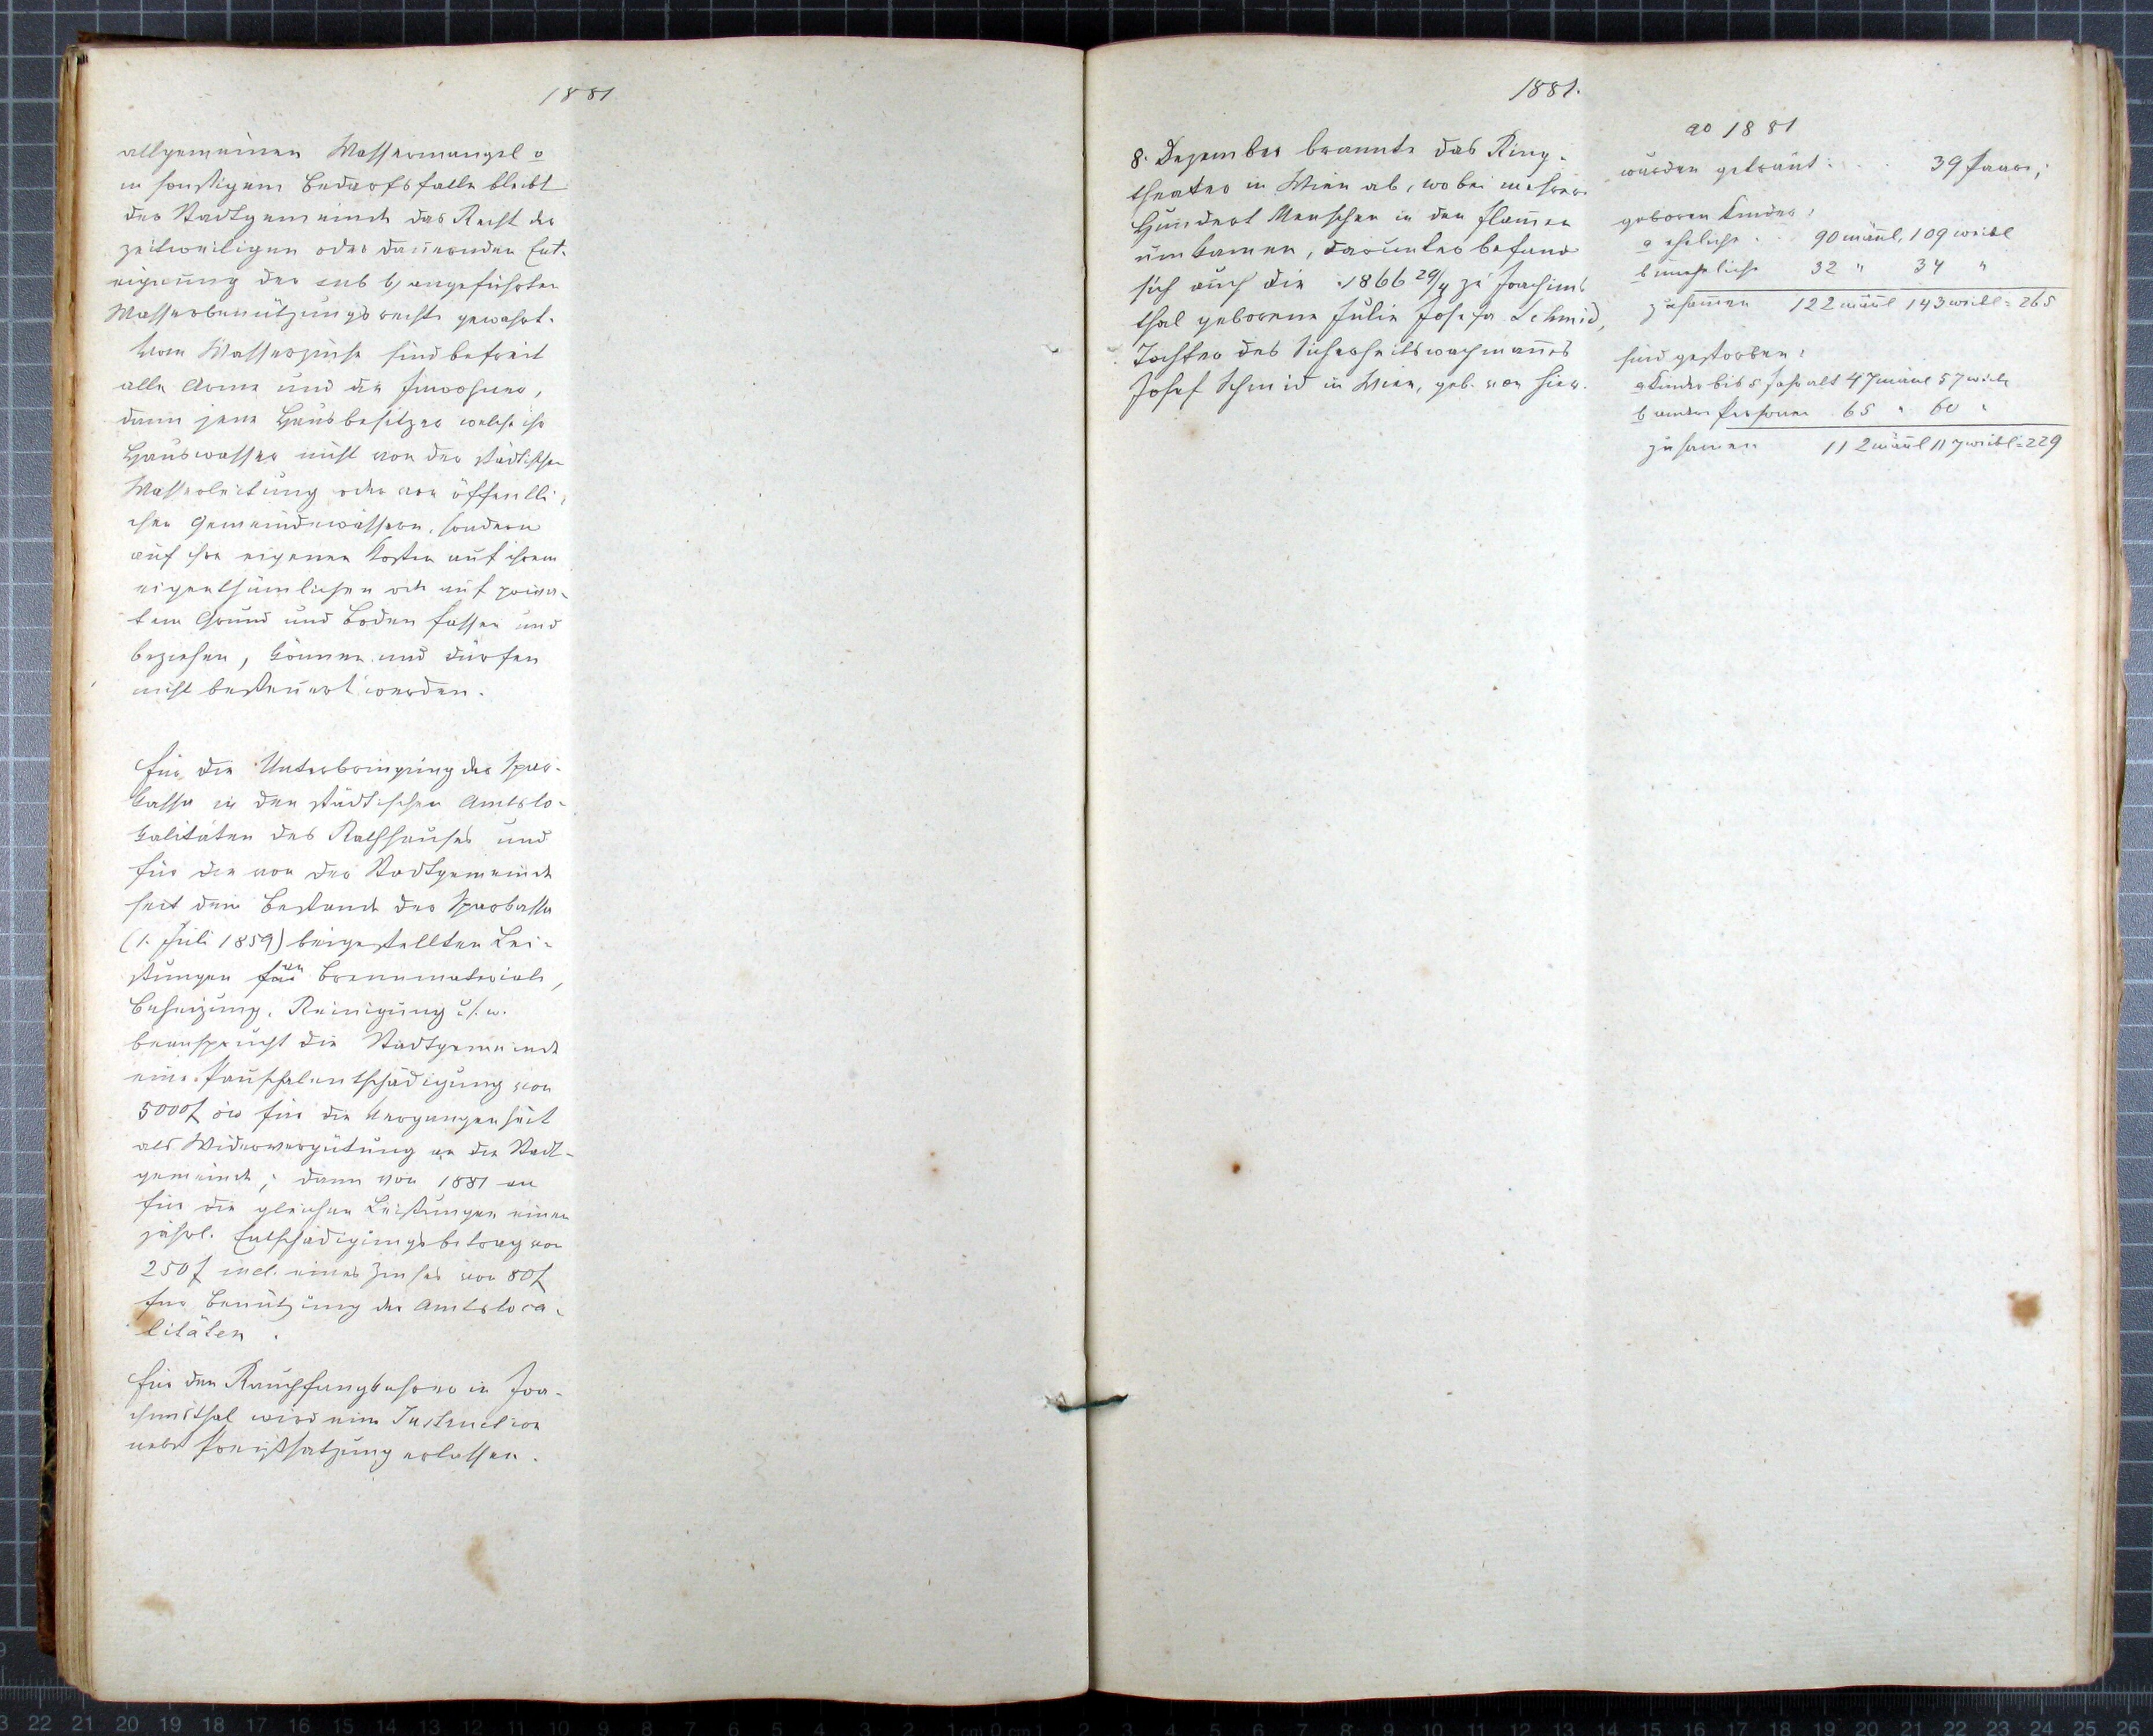 1881
allgemeinen Wassermangel o
in sonstigem Bedarfsfalle bleibt
der Stadtgemeinde das Recht der
zeitweiligen oder dauernden Ent-
eignung der sub b, angeführten
Wasserbenützungsrechte gewahrt.
Vom Wasserzinse sind befreit
alle Arme und die Inwohner,
dann jene Hausbesitzer welche ihr
Hauswasser nicht von der städtischen
Wasserleitung oder von öffentli-
chen Gemeindewässern, sondern
auf ihre eigenen Kosten auf ihrem
eigenthümlichen oder auf priva-
tem Grund und Boden fassen und
beziehen, können und dürfen
nicht besteuert werden.
Für die Unterbringung der Spar-
kassa in den städtischen Amtslo-
kalitäten des Rathhauses und
für die von der Stadtgemeinde
seit dem Bestande der Sparkassa
(1. Juli 1859) beigestellten Lei-
stungen an Brennmateriale,
Beheizung, Reinigung u.s.w.
beansprucht die Stadtgemeinde
eine Pauschalentschädigung von
5000f öw für die Vergangenheit
als Widervergütung an die Stadt-
gemeinde; dann von 1881 an
für die gleichen Leistungen einen
jährl. Entschädigungsbetrag von
250f incl. eines Zinses von 80f
für Benützung der Amtsloca-
litäten.
Für den Rauchfangkehrer in Joa-
chimsthal wird eine Instruction
nebst Preißsatzung erlassen.
1881.
8. Dezember brannte das Ring-
theater in Wien ab, wobei mehrere
Hundert Menschen in den Flam̅en
umkamen, darunter befand
sich auch die 1866 29/4 zu Joachims
thal geborene Julie Josefa Schmid,
Tochter des Sicherheitswachman̅es
Josef Schmid in Wien, geb. von hier.
ao 1881
wurden getraut: . . 39 Paare;
geboren Kinder,
a eheliche . . 90 män̅l, 109 weibl
b uneheliche 32 " 34 "
zusam̅en 122 män̅l 143 weibl = 265
sind gestorben:
a Kinder bis 5 Jahr alt 47 män̅l 57 weibl
b andere Personen 65 " 60 "
zusamen 112 män̅l 117 weibl = 229